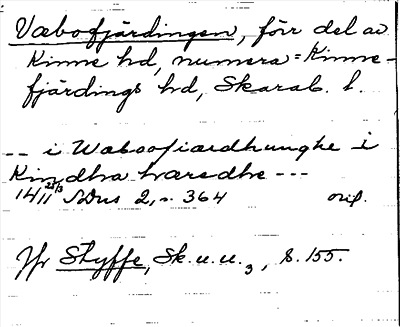 Væbofjärdingen, förr del av
Kinne hd, numera = Kinne-
fjärdings hd, Skarab. l.
-- i Wæboofiærdhunghe i
Kindha hæredhe ---
14 25/3 11 SDns 2, s. 364 orig.
Jfr Styffe, Sk. u. u. 3, s. 155.